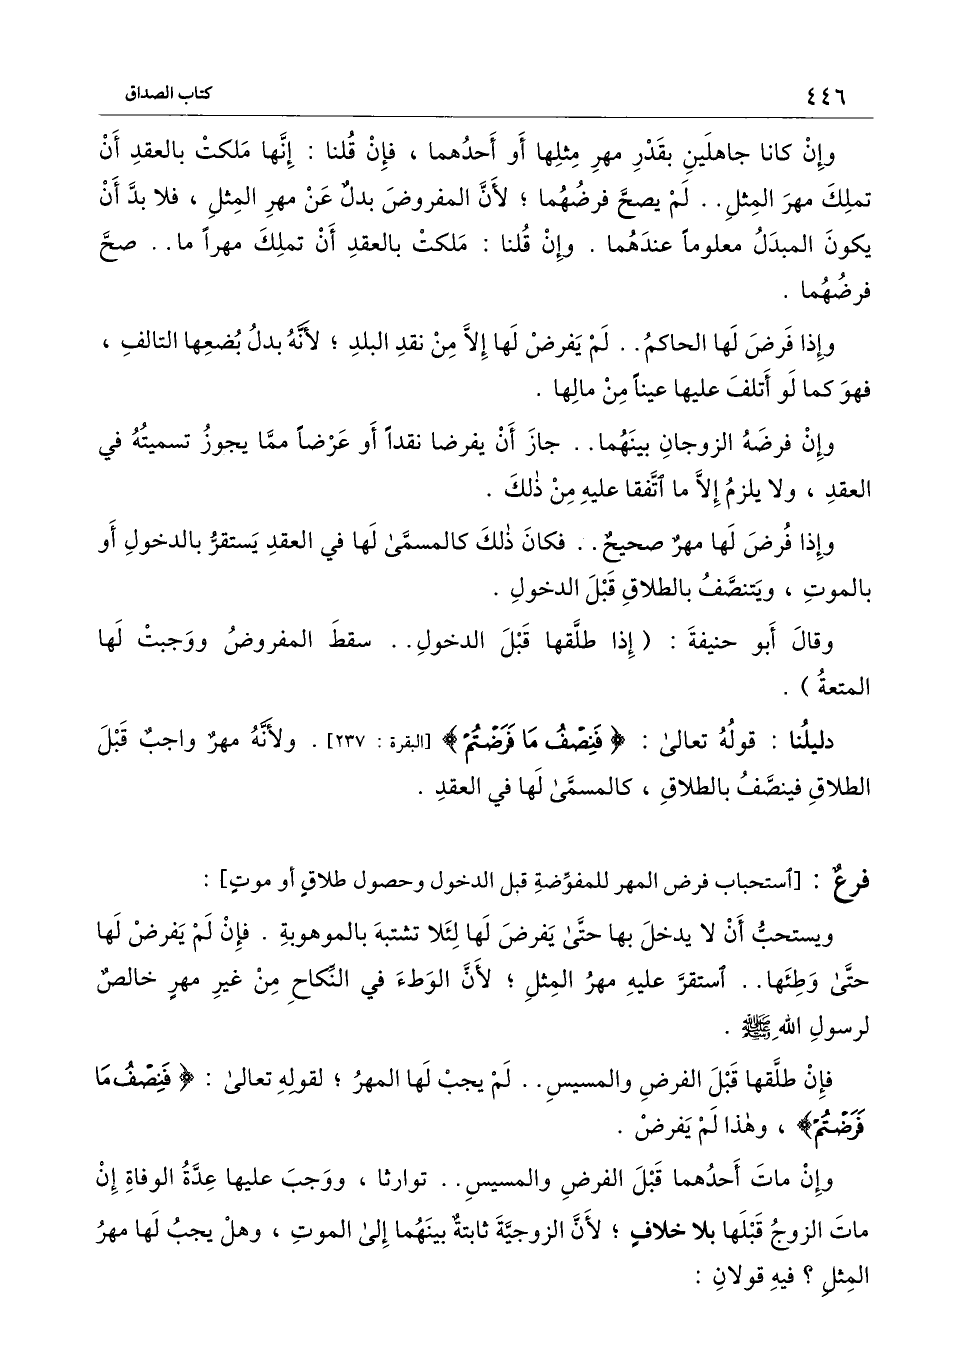 ٤٤٦ كتاب الصداق
وإِنْ كانا جاهلَينِ بقَدْرِ مهرِ مِثلِها أَو أَحدُهما ، فإِنْ قُلنا : إِنَّها مَلكتْ بالعقدِ أَنْ
تملِكَ مهرَ المِثلِ . . لَمْ يصحَّ فرضُهُما ؛ لأَنَّ المفروضَ بدلٌ عَنْ مهرِ المِثلِ ، فلا بدَّ أَنْ
يكونَ المبدَلُ معلوماً عندَهُما . وإِنْ قُلنا : مَلكتْ بالعقدِ أَنْ تملِكَ مهراً ما . . صحَّ
فرضُهُما .
وإِذا فَرضَ لَها الحاكمُ . . لَمْ يَفرضْ لَها إِلاَّ مِنْ نقدِ البلدِ ؛ لأَنَّهُ بدلُ بُضعِها التالفِ ،
فهوَ كما لَو أَتلفَ عليها عيناً مِنْ مالِها .
وإِنْ فرضَهُ الزوجانِ بينَهُما . . جازَ أَنْ يفرضا نقداً أَو عَرْضاً ممَّا يجوزُ تسميتُهُ في
العقدِ ، ولا يلزمُ إِلاَّ ما ٱتَّفقا عليهِ مِنْ ذٰلكَ .
وإِذا فُرضَ لَها مهرٌ صحيحٌ . . فكانَ ذٰلكَ كالمسمَّىٰ لَها في العقدِ يَستقرُّ بالدخولِ أَو
بالموتِ ، ويَتنصَّفُ بالطلاقِ قَبْلَ الدخولِ .
وقالَ أَبو حنيفةَ : ( إِذا طلَّقها قَبْلَ الدخولِ . . سقطَ المفروضُ ووَجبتْ لَها
المتعةُ ) .
دليلُنا : قولُهُ تعالىٰ : ﴿ فَنِصْفُ مَا فَرَضْتُمْ ﴾ [البقرة : ٢٣٧] . ولأَنَّهُ مهرٌ واجبٌ قَبْلَ
الطلاقِ فينصَّفُ بالطلاقِ ، كالمسمَّىٰ لَها في العقدِ .
فرعٌ : [ٱستحباب فرض المهر للمفوِّضةِ قبل الدخول وحصول طلاقٍ أو موتٍ] :
ويستحبُّ أَنْ لا يدخلَ بها حتَّىٰ يَفرضَ لَها لِئَلا تشتبهَ بالموهوبةِ . فإِنْ لَمْ يَفرضْ لَها
حتَّىٰ وَطِئَها . . ٱستقرَّ عليهِ مهرُ المِثلِ ؛ لأَنَّ الوَطءَ في النِّكاحِ مِنْ غيرِ مهرٍ خالصٌ
لرسولِ اللهِ ﷺ .
فإِنْ طلَّقها قَبْلَ الفرضِ والمسيسِ . . لَمْ يجبْ لَها المهرُ ؛ لقولِهِ تعالىٰ : ﴿ فَنِصْفُ مَا
فَرَضْتُمْ ﴾ ، وهٰذا لَمْ يَفرضْ .
وإِنْ ماتَ أَحدُهما قَبْلَ الفرضِ والمسيسِ . . توارثا ، ووَجبَ عليها عِدَّةُ الوفاةِ إِنْ
ماتَ الزوجُ قَبْلَها بلا خلافٍ ؛ لأَنَّ الزوجيَّةَ ثابتةٌ بينَهُما إِلىٰ الموتِ ، وهلْ يجبُ لَها مهرُ
المِثلِ ؟ فيهِ قولانِ :